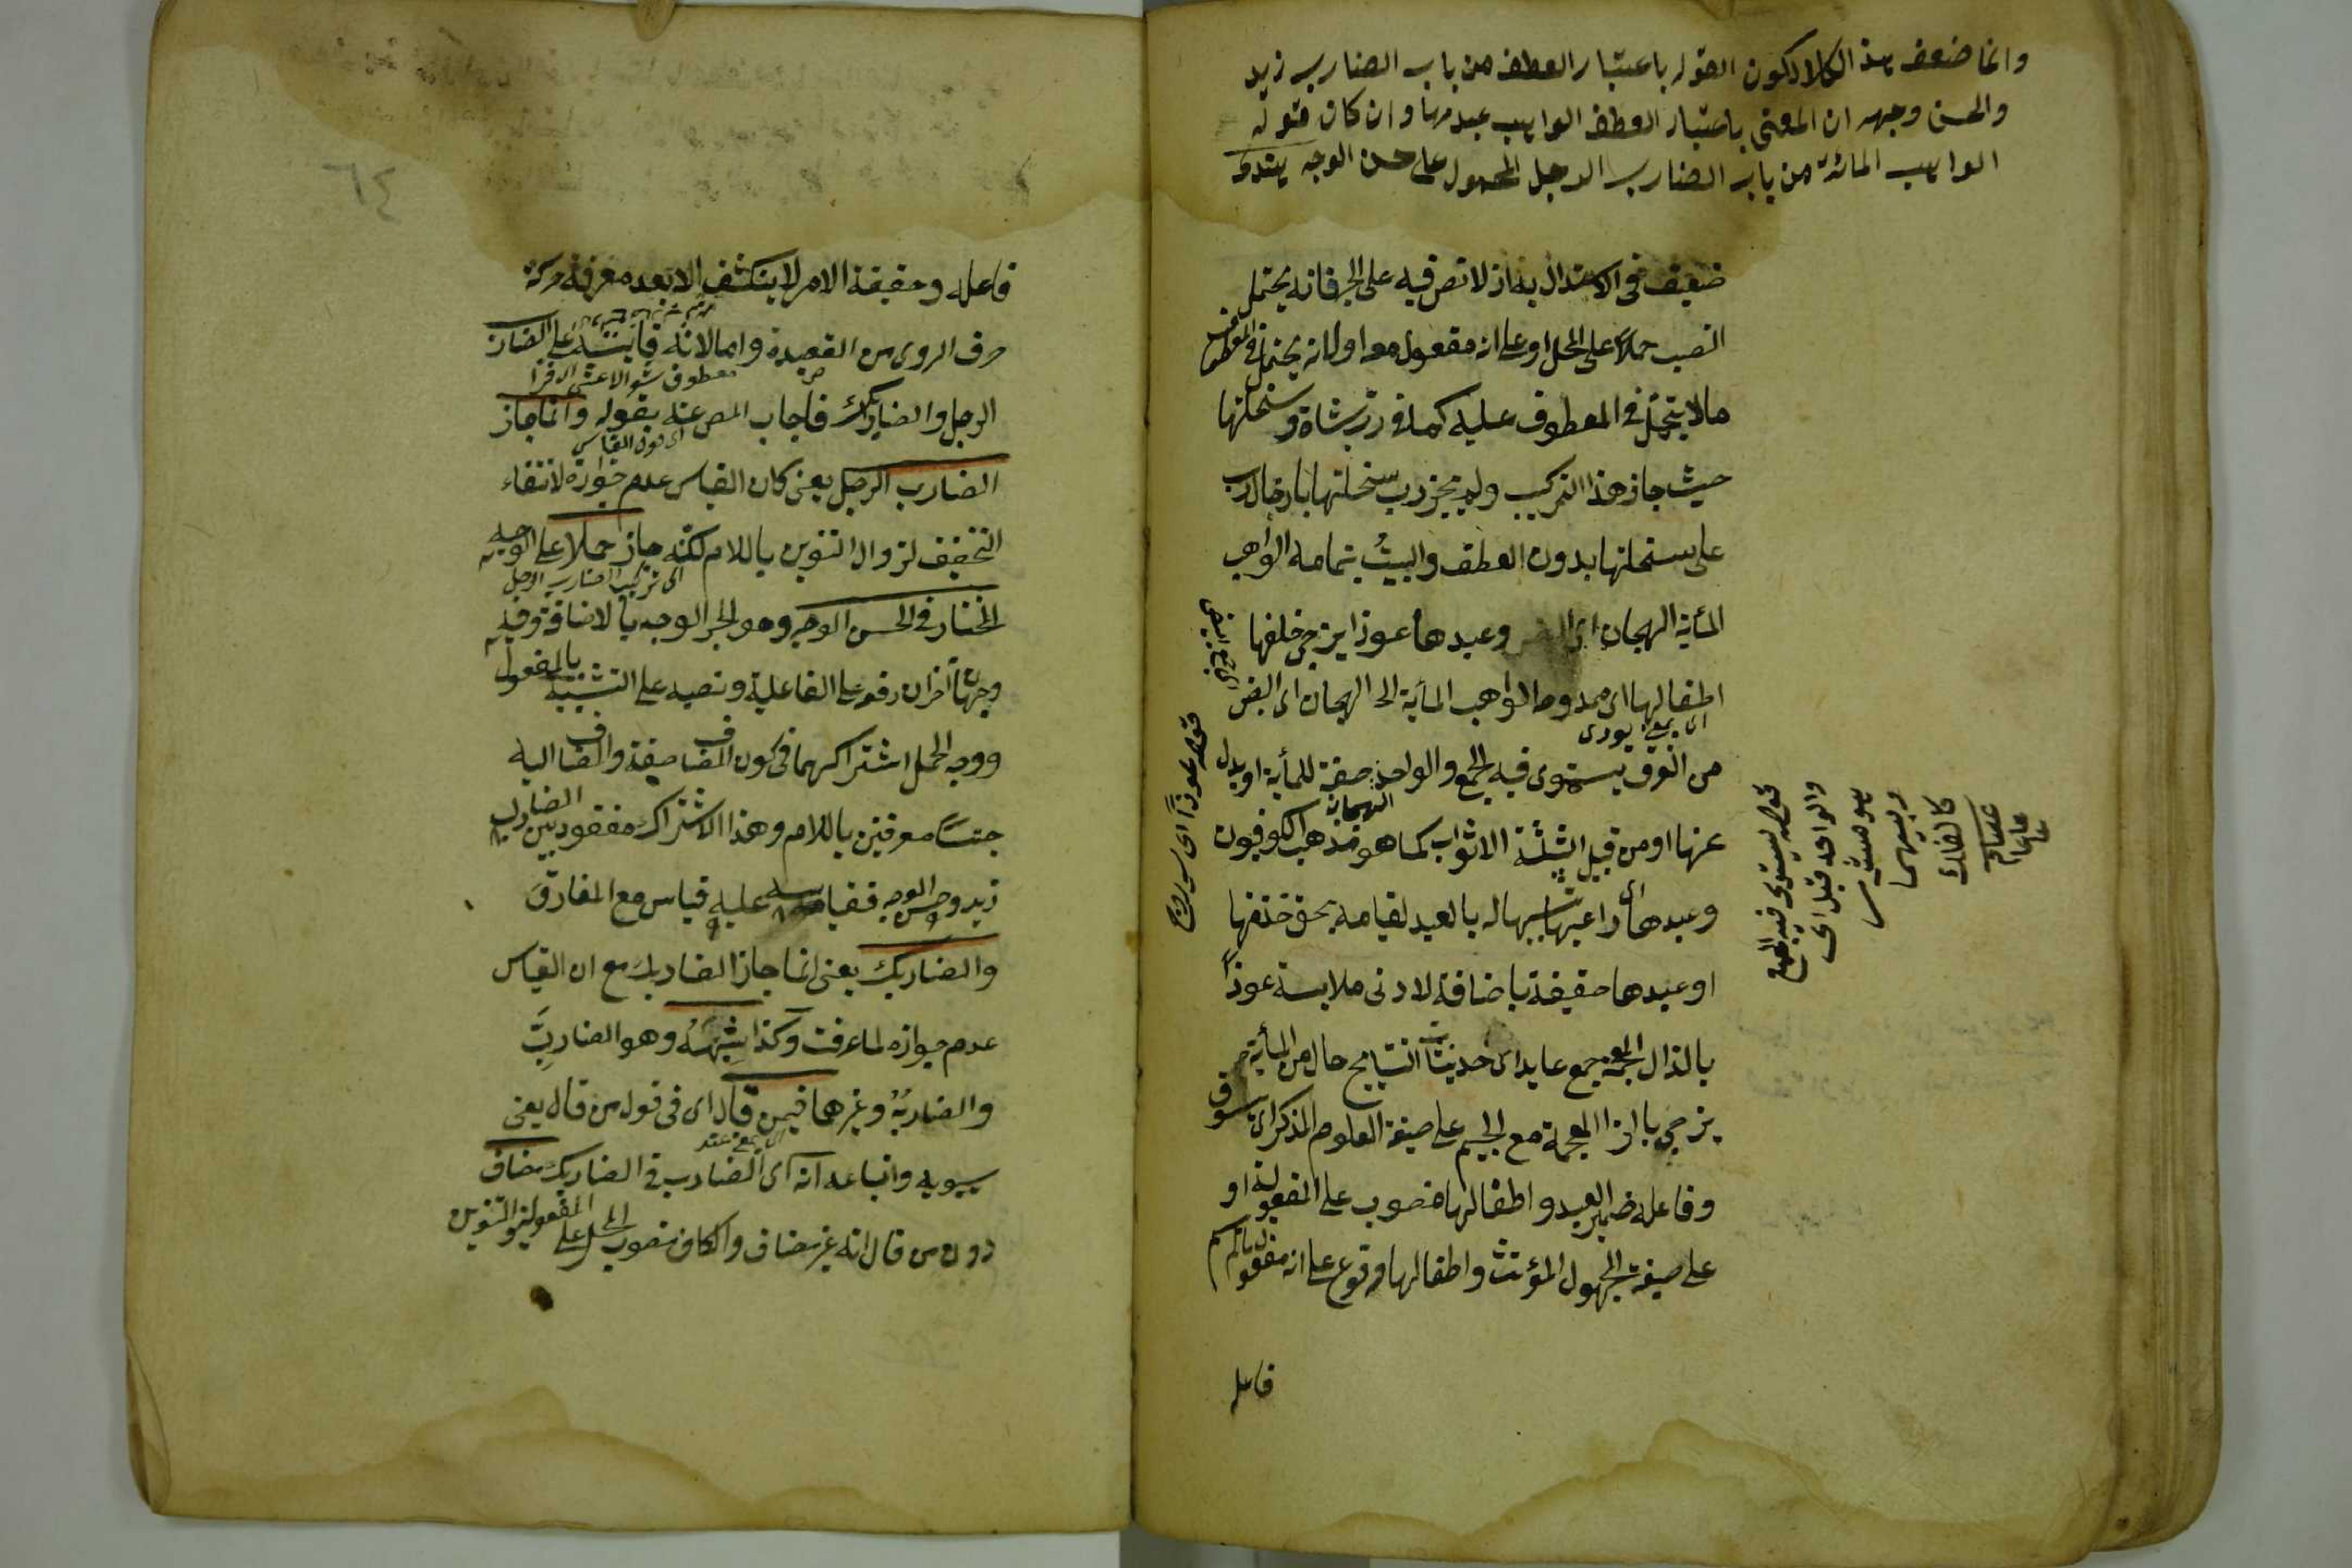 وانما ضعف هذا الكلام لكون القول باعتبار العطف من باب الضارب زيد
والحسن وجهه ان المعنى باعتبار العطف الواهب عبدها وان كان قوله
الواهب المائة من باب الضارب الرجل المحمول على حسن الوجه
ضعيف فى الاستدلال به اذ لا نص فيه على الجر فانه يحتمل
النصب حملا على المحل او على انه مفعول معه او لانه يحتمل فى المعطوف
ما لا يتحمل فى المعطوف عليه كما فى رب شاة وسخلتها
حيث جاز هذا التركيب ولم يجز رب سخلتها بادخال رب
على سخلتها بدون العطف والبيت بتمامه الواهب
المأية الهجان وعبدها عوذا يزجى خلفها
اطفالها اى ممدوحه الواهب المأية الهجان اى البيض
اى بمعنى
من النوق يستوى فيه الجمع والواحد صفة للمأية او بدل
عنها او من قبيل الثلثة الاثواب كما هو مذهب الكوفيون
الهجان
وعبدها اى راعيها تشبيها له بالعبد لقيامه بحق خدمتها
او عبدها حقيقة باضافة لادنى ملابسة عوذاً
بالذال المعجمة جمع عايد اى حديثات النتايج حال من المأية
يزجى بالزا المعجمة مع الجيم على صيغة المعلوم المذكر اى يسوق
وفاعله ضمير العبد واطفالها منصوب على المفعولية او
على صيغة المجهول المؤنث واطفالها مرفوع على انه مفعول
فاعله
قوله عوذاً اى
قوله يستوى فيه الجمع
والواحد قيل اى
هو مشترك
بينهما
كالفلك
عصام
٦٤
فاعله وحقيقة الامر لا ينكشف الا بعد معرفة حركة
حرف الروى من القصيدة واما لانه قاسه على الضارب
معطوف
الرجل والضاربك فاجاب المص عنه بقوله وانما جاز
الضارب الرجل يعنى كان القياس عدم جوازه لانتفاء
التخفيف لزوال التنوين باللام لكنه جاز حملا على الوجه
اى تركيب الضارب الرجل
المختار فى الحسن الوجه وهو الجر الوجه بالاضافة وفيه
وجهان آخران رفعه على الفاعلية ونصبه على التشبيه بالمفعول
ووجه الحمل اشتراكهما فى كون المضاف صفة والمضاف اليه
جنسا معرفتين باللام وهذا الاشتراك مفقود بين الضارب
زيد وحسن الوجه فقياسه عليه قياس مع الفارق
والضاربك يعنى انما جاز الضاربك مع ان القياس
عدم جوازه لما عرفت وكذا شبهه وهو الضاربى
والضاربه وغيرهما فيمن قال اى فى قول من قال يعنى
سيبويه واتباعه انه اى الضارب فى الضاربك مضاف
دون من قال انه غير مضاف والكاف منصوب المحل على المفعولية والتنوين